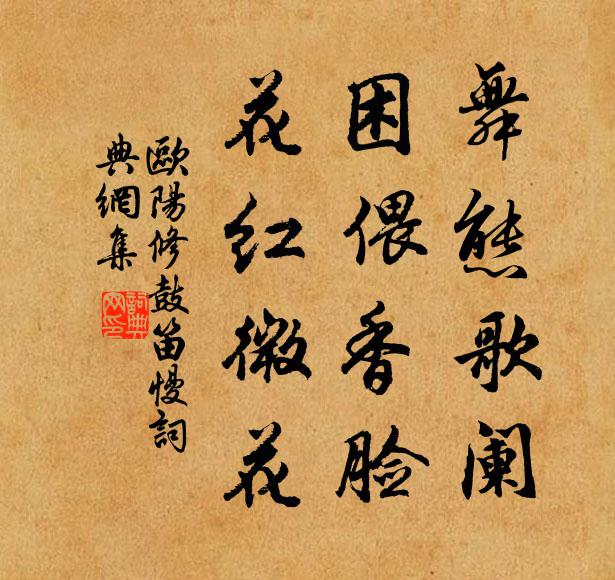 舞態歌阑
困偎香脸
花红微花
歐陽修鼓笛慢詞
典網集
詞典
网印